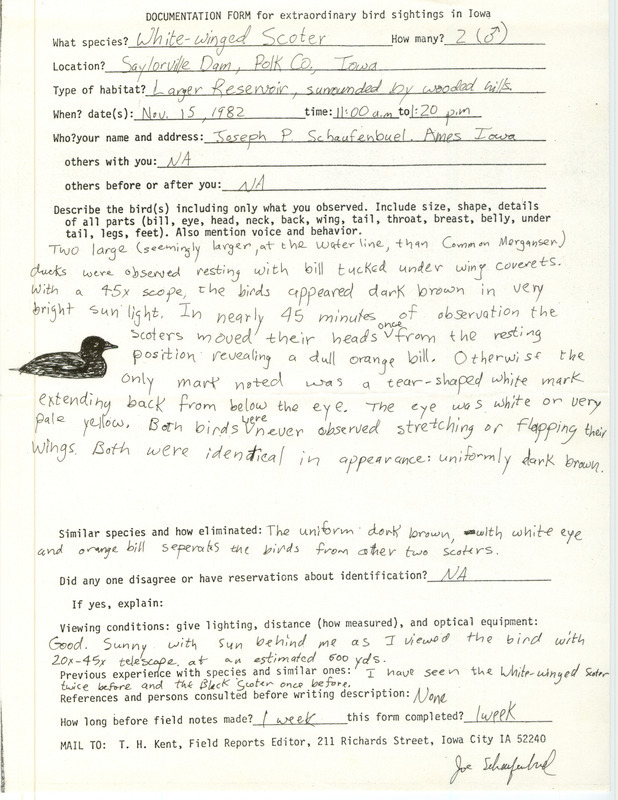 DOCUMENTATION FORM for extraordinary bird sightings in Iowa
What species? White-winged Scoter How many? 2 (♂)
Location? Saylorville Dam, Polk Co., Iowa
Type of habitat? Larger Reservoir, surrounded by wooded hills.
When? date(s): Nov. 15, 1982 time: 11:00 a.m to 1:20 p.m
Who? your name and address: Joseph P. Schaufenbuel. Ames Iowa
others with you: NA
others before or after you: NA
Describe the bird(s) including only what you observed. Include size, shape, details
of all parts (bill, eye, head, neck, back, wing, tail, throat, breast, belly, under
tail, legs, feet). Also mention voice and behavior.
Two large (seemingly larger, at the waterline, than Common Morgansen)
ducks were observed resting with bill tucked under wing coverets.
With a 45x scope, the birds appeared dark brown in very
bright sun light. In nearly 45 minutes of observation the
scoters moved their heads once from the resting
position revealing a dull orange bill. Otherwise the
only mark noted was a tear-shaped white mark
extending back from below the eye. The eye was white or very
pale yellow. Both birds were never observed stretching or flapping their
wings. Both were identical in appearance: uniformly dark brown.
Similar species and how eliminated: The uniform dark brown, with white eye
and orange bill seperates the birds from other two scoters.
Did any one disagree or have reservations about identification? NA
If yes, explain:
Viewing conditions: give lighting, distance (how measured), and optical equipment:
Good. Sunny with sun behind me as I viewed the bird with
20x-45x telescope at an estimated 600 yds.
Previous experience with species and similar ones: I have seen the White-winged Scoter
twice before and the Black Scoter once before.
References and persons consulted before writing description: None
How long before field notes made? 1 week this form completed? 1 week
MAIL TO: T. H. Kent, Field Reports Editor, 211 Richards Street, Iowa City IA 52240
Joe Schaufenbuel